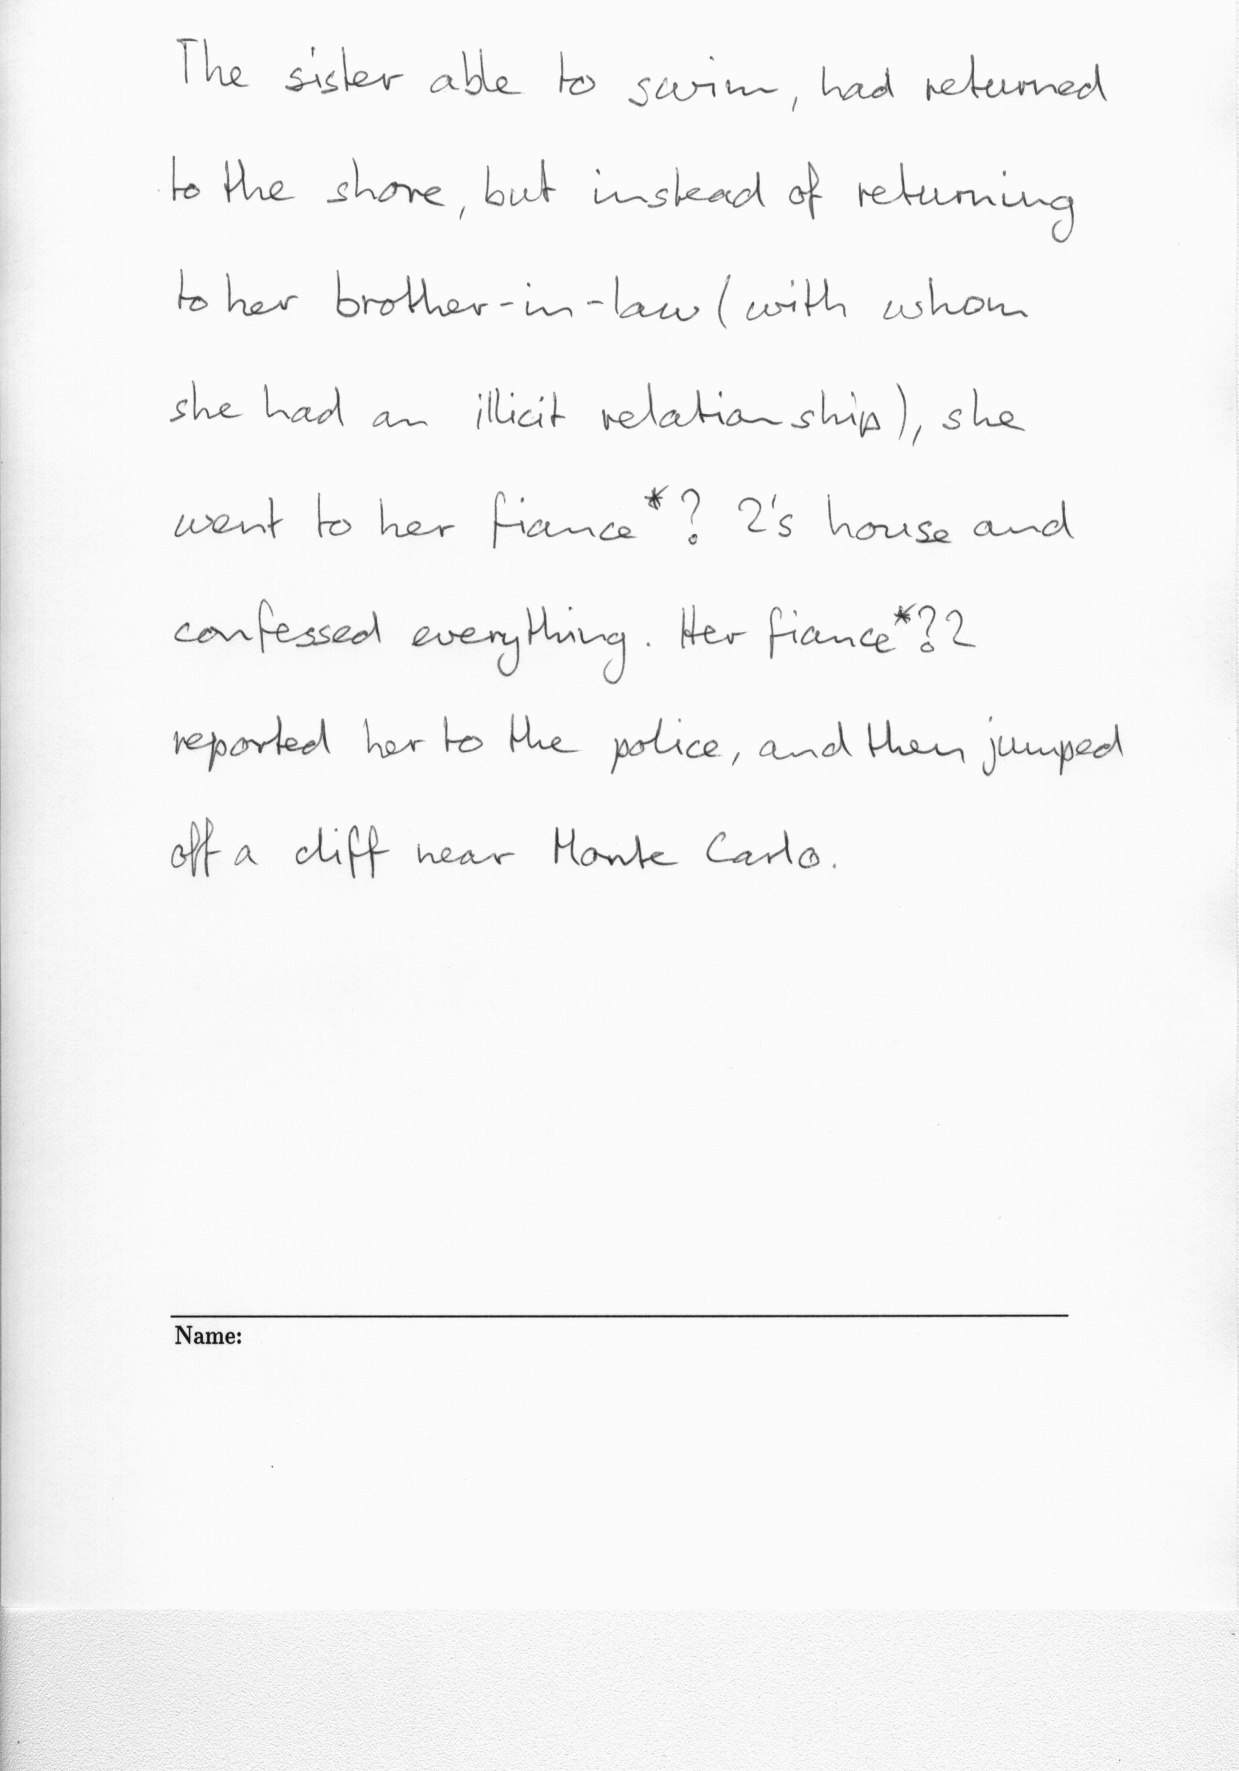 The sister able to swim, had returned
to the shore, but instead of returning
to her brother-in-law (with whom
she had an illicit relationship), she
went to her fiance*? 2's house and
confessed everything. Her fiance*?2
reported her to the police, and then jumped
off a cliff near Monte Carlo.
Name: